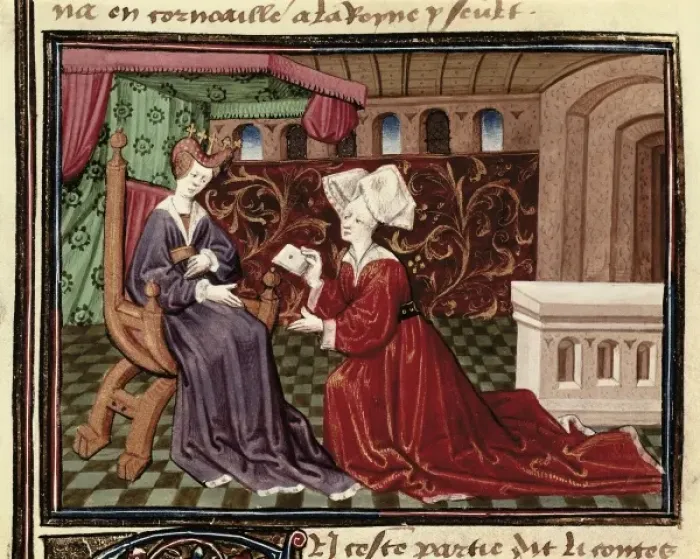 na en cornoaille a la Royne yseult.
N ceste partie dit li contes